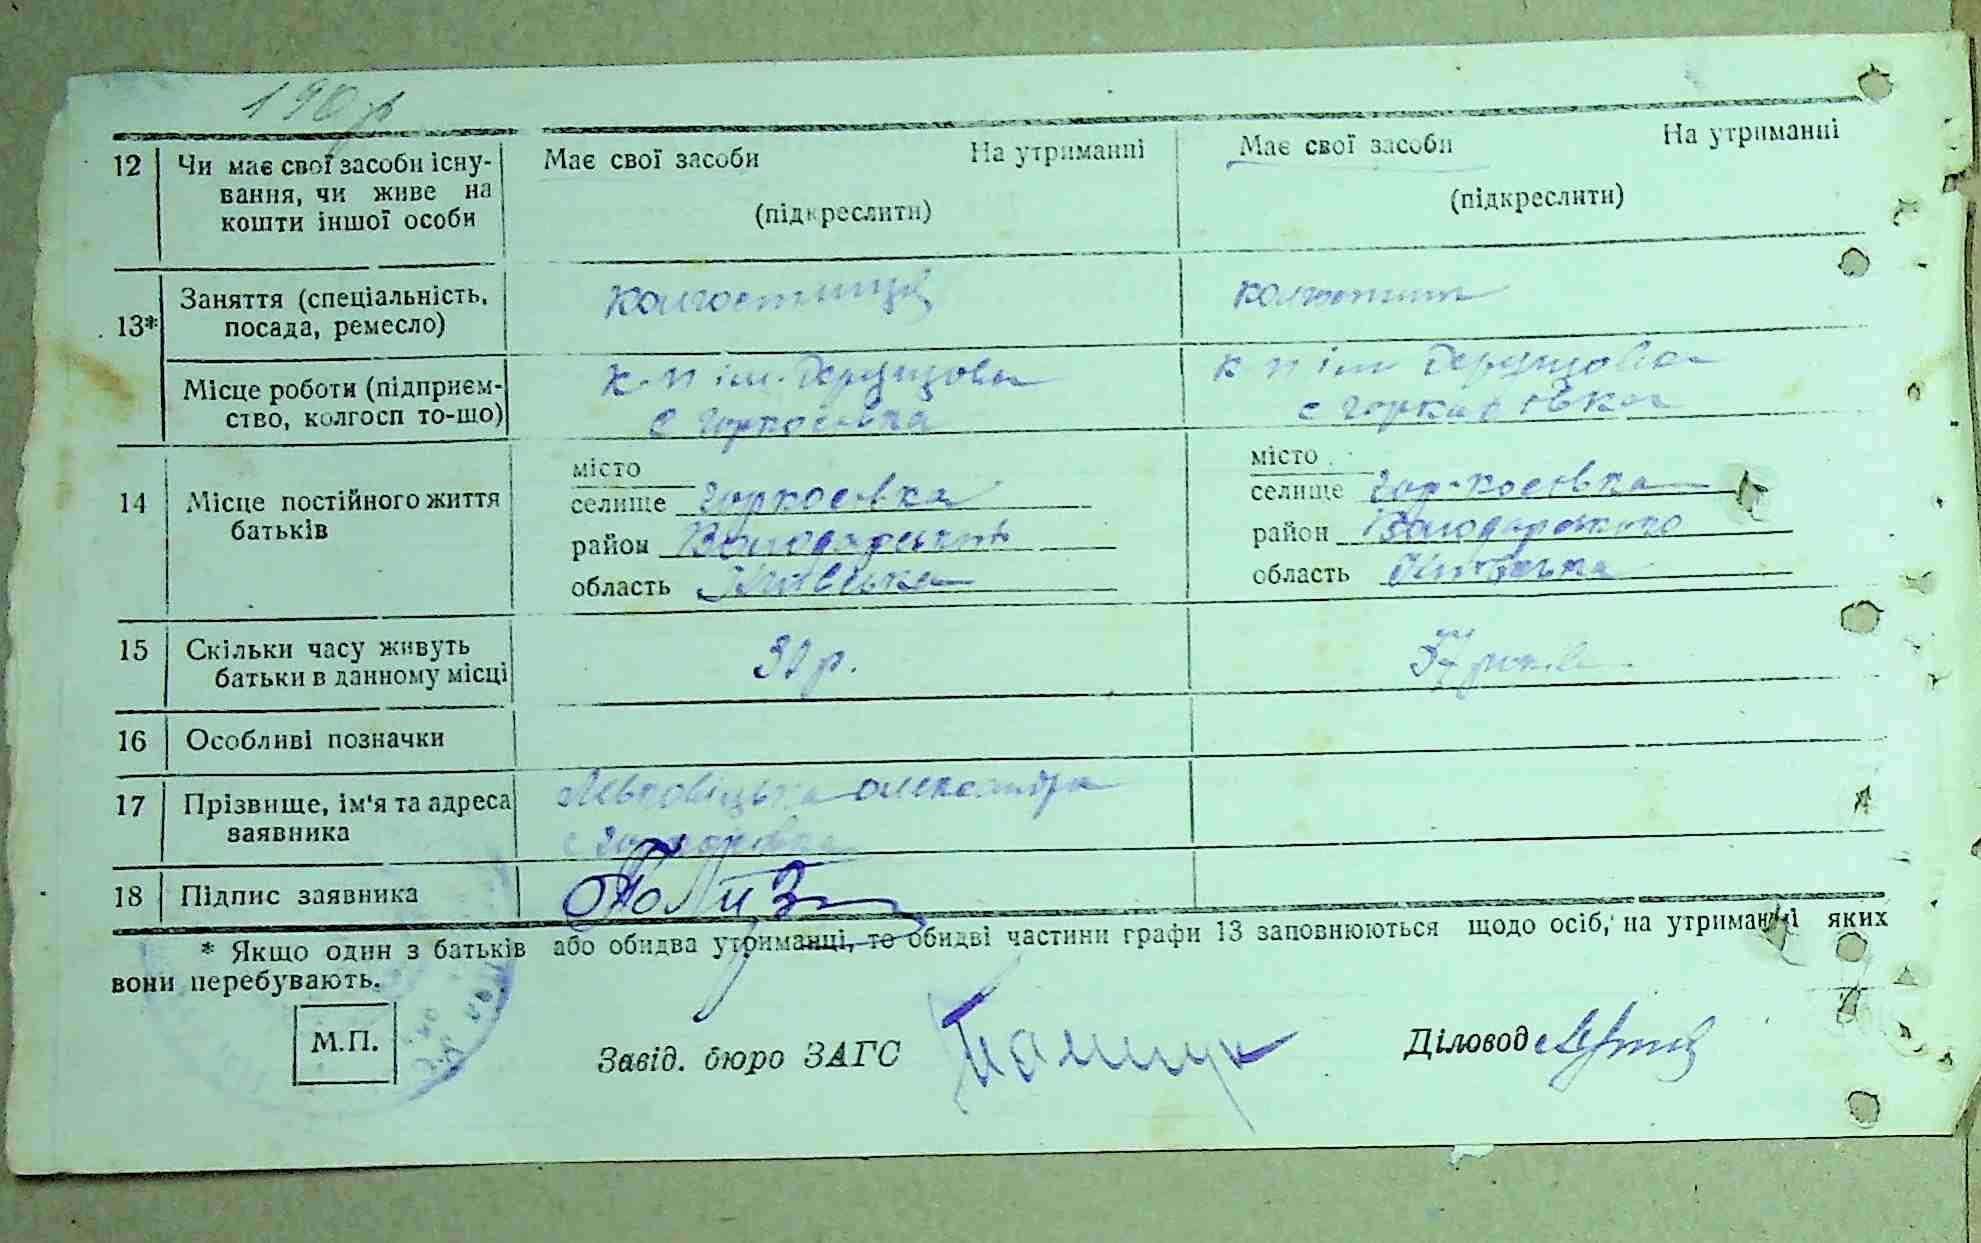 190р
12 Чи має свої засоби існу- Має свої засоби На утриманні Має свої засоби На утриманні
вання, чи живе на
кошти іншої особи (підкреслити) (підкреслити)
Заняття (спеціальність, колгоспниця колгоспник
13* посада, ремесло)
Місце роботи (підприєм- к-п ім. к-п ім
ство, колгосп то-що) с Горкосівка с
14 Місце постійного життя місто місто
батьків селище Горкосівка селище Горкосівка
район Володарський район Володарського
область Київська область Київська
15 Скільки часу живуть 30 р. 37 років
батьки в данному місці
16 Особливі позначки
17 Прізвище, ім'я та адреса Олександра
заявника с
18 Підпис заявника
* Якщо один з батьків або обидва утриманці, то обидві частини графи 13 заповнюються щодо осіб, на утриманні яких
вони перебувають.
М.П. Завід. бюро ЗАГС Діловод